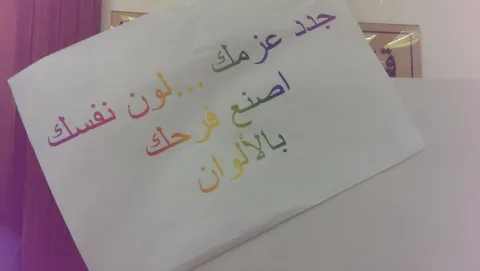 جدد عزمك ...لون نفسك
اصنع فرحك
بالألوان